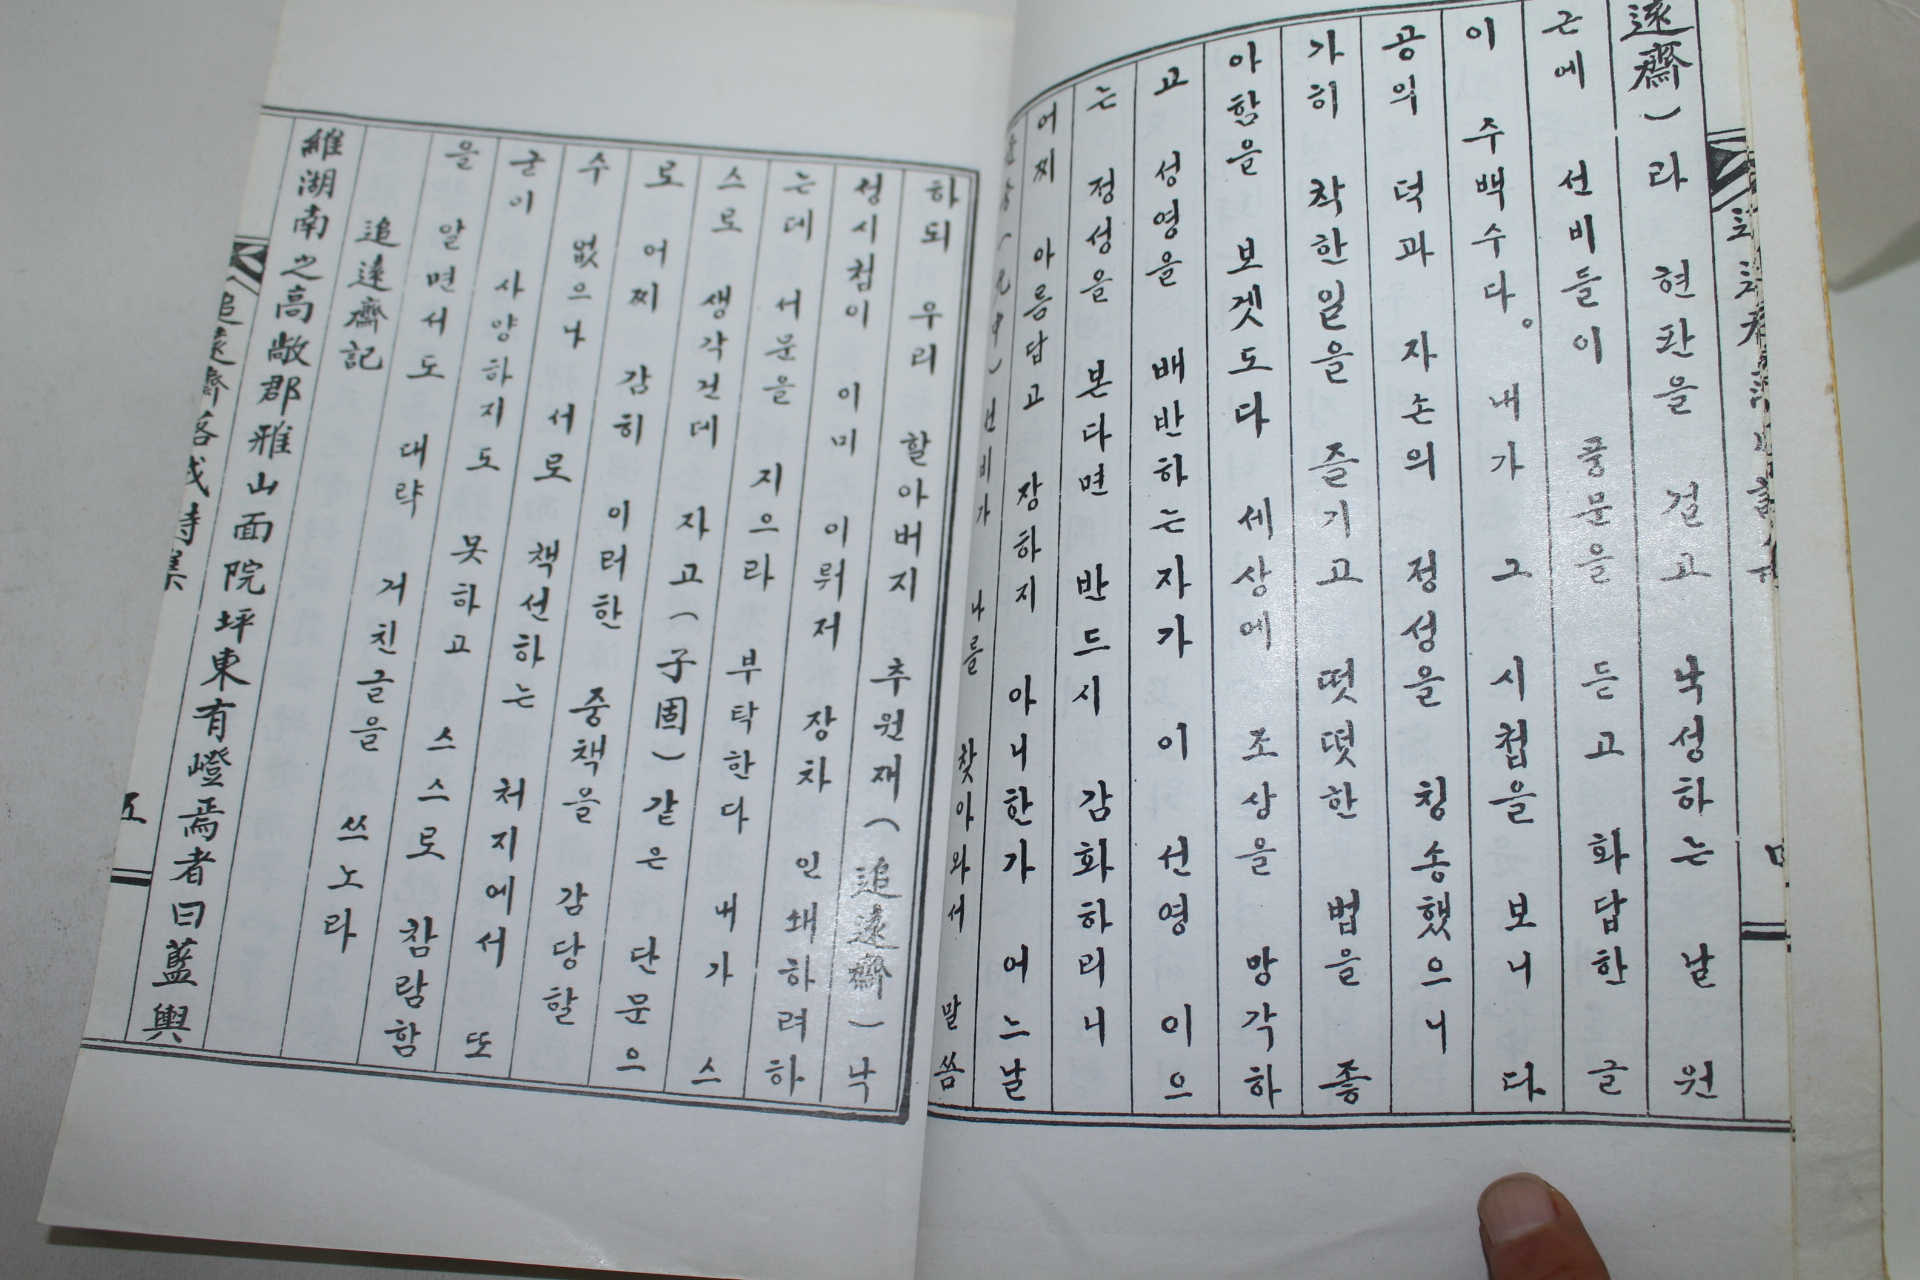 遠齋)라 현판을 걸고 낙성하는 날 원
근에 선비들이 풍문을 듣고 화답한 글
이 수백수다。 내가 그 시첩을 보니 다
공의 덕과 자손의 정성을 칭송했으니
가히 착한일을 즐기고 떳떳한 법을 좋
아함을 보겟도다 세상에 조상을 망각하
고 성영을 배반하는자가 이 선영 이으
는 정성을 본다면 반드시 감화하리니
어찌 아름답고 장하지 아니한가 어느날
선비가 나를 찾아와서 말씀
하되 우리 할아버지 추원재(追遠齋)낙
성시첩이 이미 이뤄저 장차 인쇄하려하
는데 서문을 지으라 부탁한다 내가 스
스로 생각건데 자고(子固)같은 단문으
로 어찌 감히 이러한 중책을 감당할
수 없으나 서로 책선하는 처지에서 또
굳이 사양하지도 못하고 스스로 참람함
을 알면서도 대략 거친글을 쓰노라
追遠齋記
維湖南之高敞郡雅山面院坪東有嶝焉者曰藍輿
追遠齋落成詩集
五